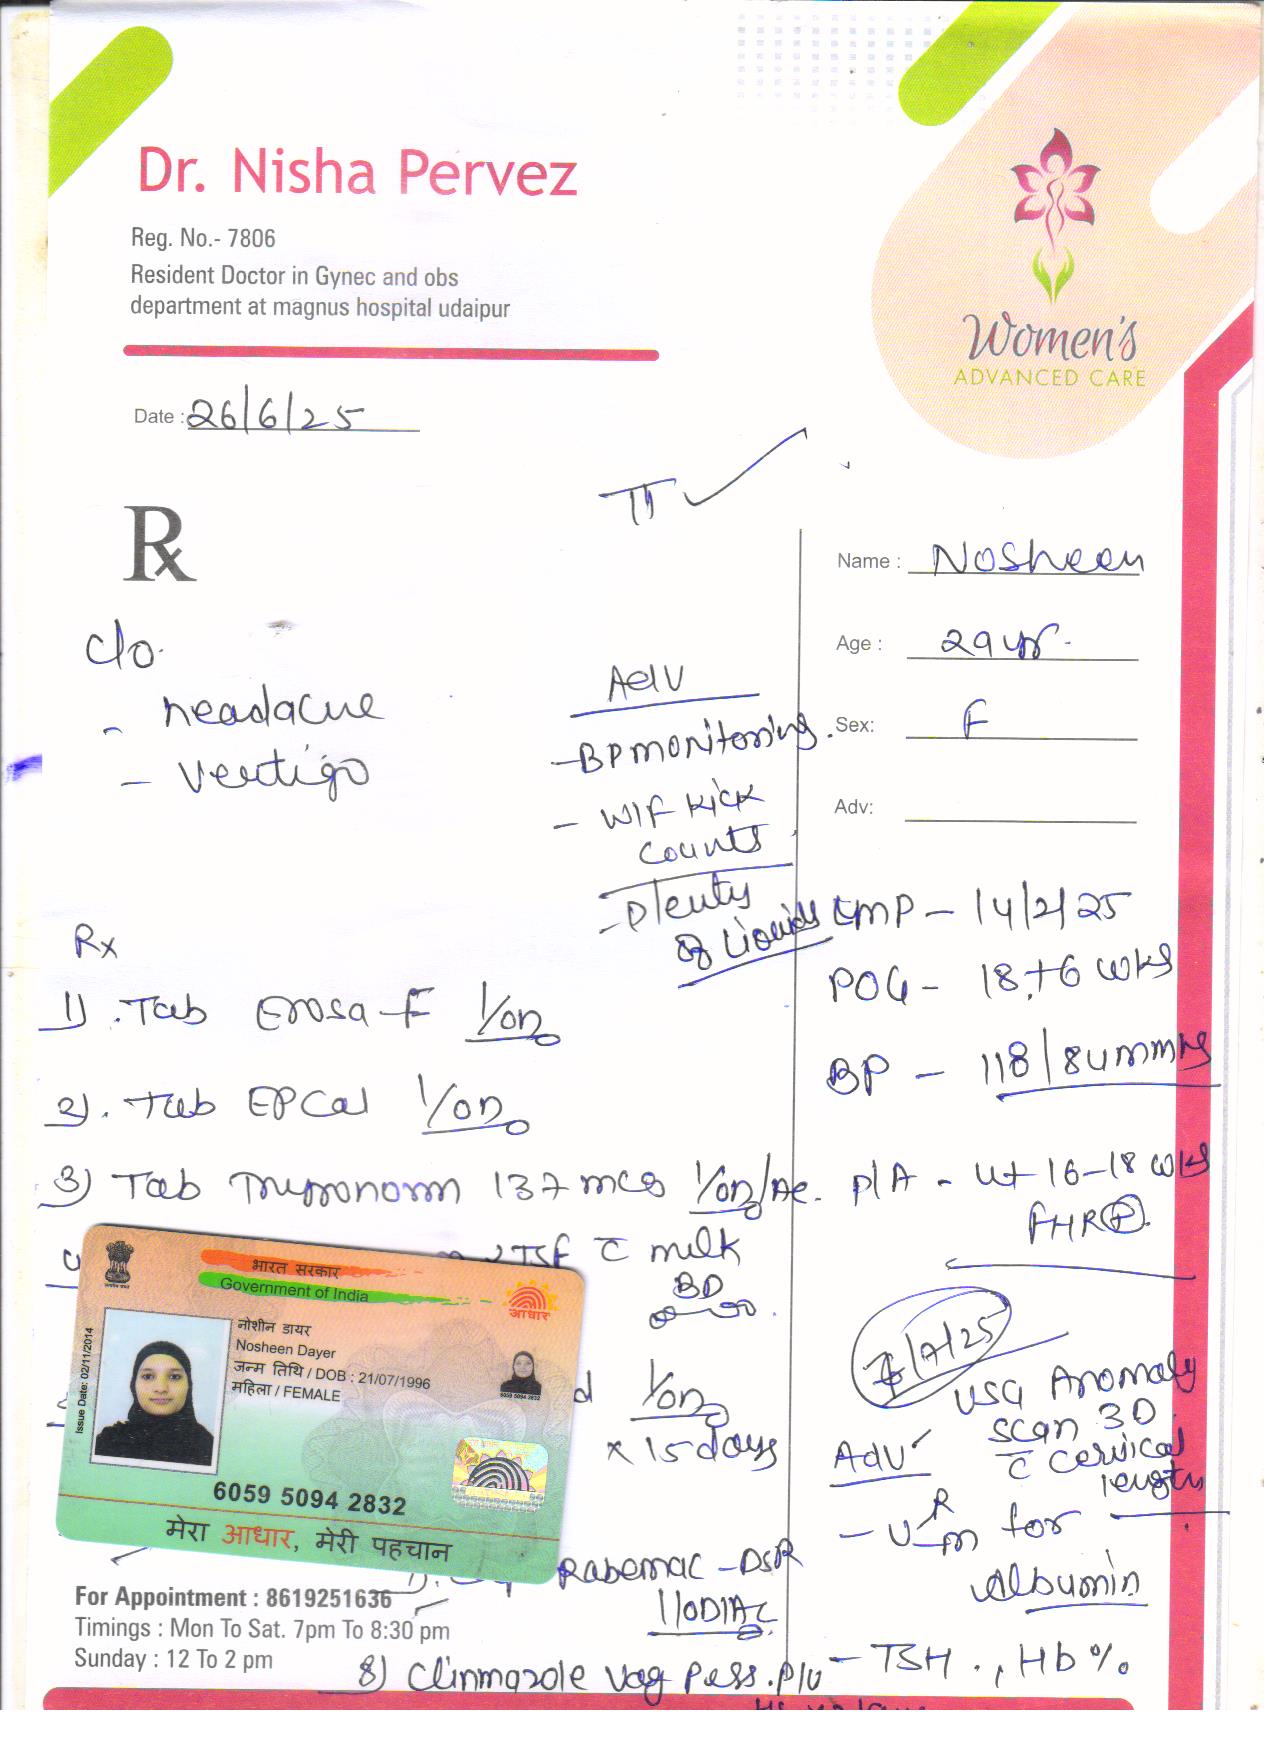 Dr. Nisha Pervez
Reg. No.- 7806
Resident Doctor in Gynec and obs
department at magnus hospital udaipur
Women's
ADVANCED CARE
Date : 26/6/25
Name : Nosheen
Age : 29 yr.
Sex: F
Adv:
c/o.
- headache
- vertigo
Adv
- BP monitoring.
- W/F kick
counts
- Plenty
of liquids
LMP - 14/2/25
POG - 18+6 wks
BP - 118/84 mmHg
P/A - ut 16-18 wks
FHR
USG Anomaly
scan 3D
c cervical
length
Adv
- U R/m for
Albumin
- TSH., Hb%
Rx
1). Tab 1/OD
2). Tab EPCal 1/OD
3) Tab Thyronorm 137 mcg 1/OD/
2 TSF c milk
BD
1/OD
x 15 days
Rabemac-DSR
1/OD/AC
8) Clinmazole Vag Pess. P/V
भारत सरकार
Government of India
आधार
Issue Date: 02/11/2014
नोशीन डायर
Nosheen Dayer
जन्म तिथि / DOB : 21/07/1996
महिला / FEMALE
6059 5094 2832
6059 5094 2832
मेरा आधार, मेरी पहचान
For Appointment : 8619251636
Timings : Mon To Sat. 7pm To 8:30 pm
Sunday : 12 To 2 pm